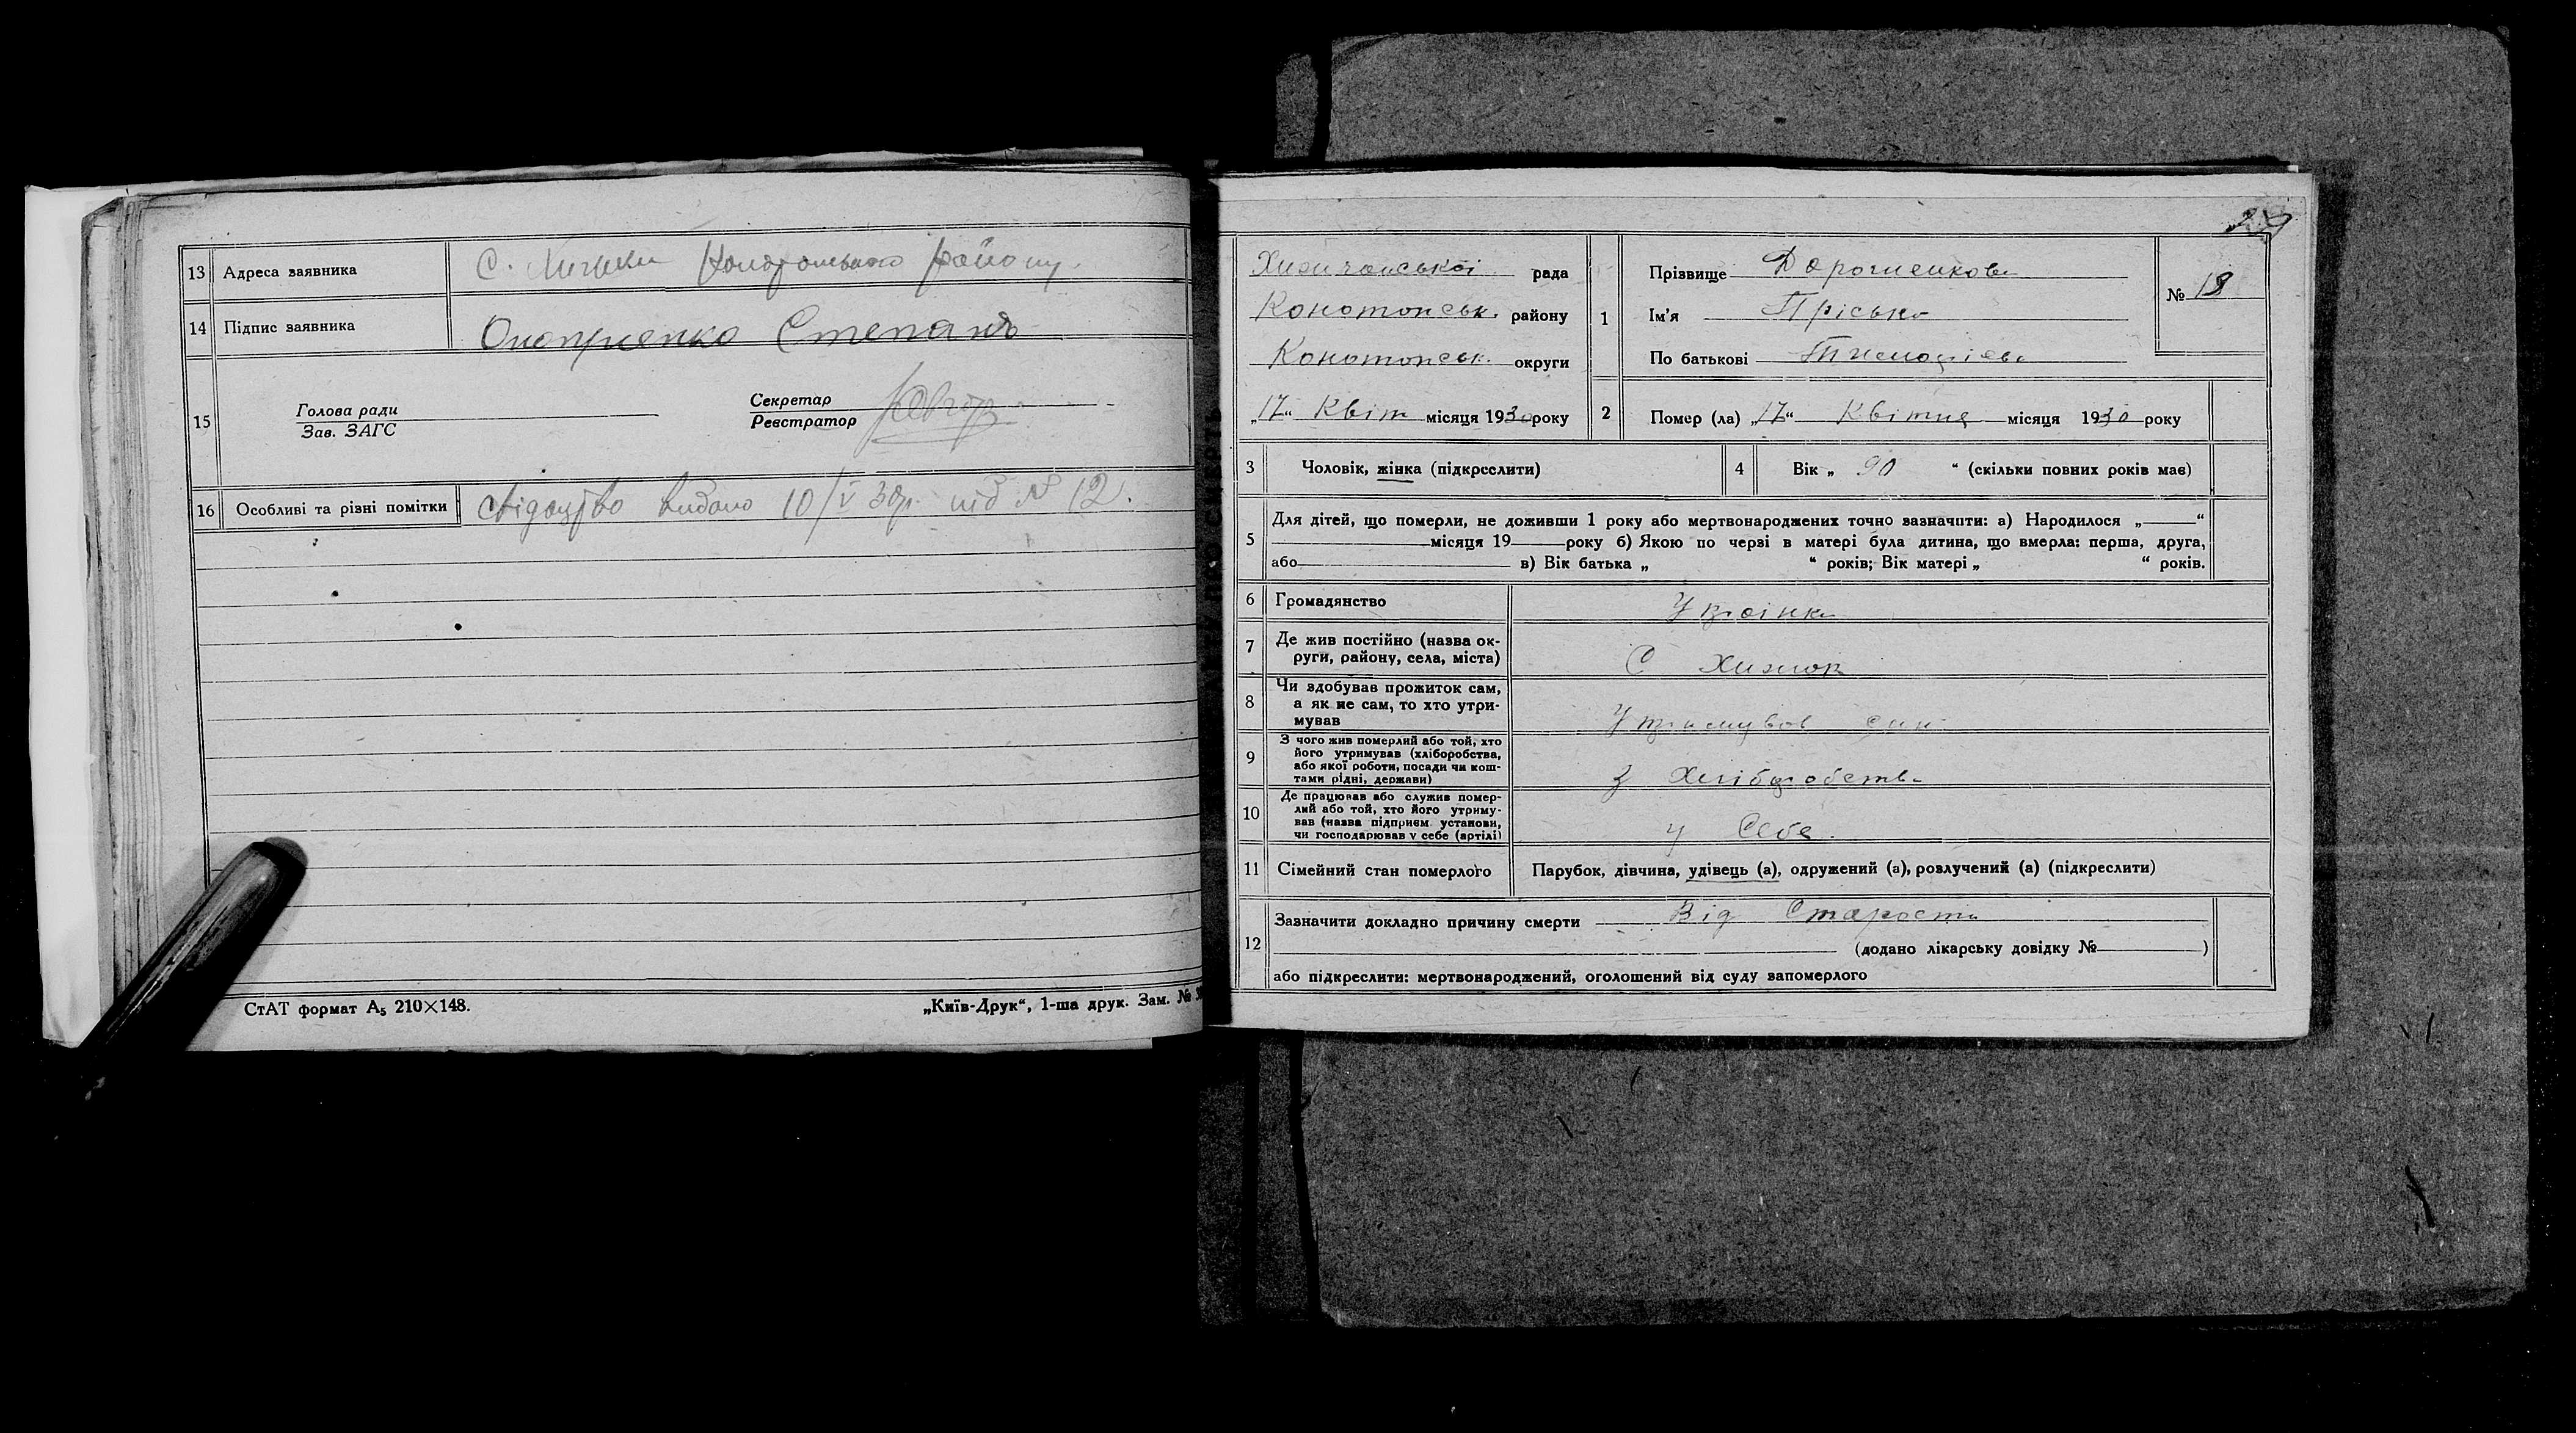 13 Адреса заявника С. Хижки Конотопського району
14 Підпис заявника Оноприенко Степанъ
15 Голова ради
Зав. ЗАГС
Секретар
Реєстратор
16 Особливі та різні помітки свідоцтво видано 10/V 30р. під № 12.
СтАТ формат А5 210×148.
„Київ-Друк“, 1-ша друк. Зам. №
рада
Конотопськ. району
Конотопськ. округи
„17“ Квіт місяця 1930 року
1 Прізвище
Ім'я Пріська
По батькові
№ 18
2 Помер (ла) „17“ Квітня місяця 1930 року
3 Чоловік, жінка (підкреслити)
4 Вік „ 90 “ (скільки повних років має)
5 Для дітей, що померли, не доживши 1 року або мертвонароджених точно зазначити: а) Народилося „ “
місяця 19 року б) Якою по черзі в матері була дитина, що вмерла: перша, друга,
або в) Вік батька „ “ років; Вік матері „ “ років.
6 Громадянство Українка
7 Де жив постійно (назва ок-
руги, району, села, міста) С Хижок
8 Чи здобував прожиток сам,
а як не сам, то хто утри-
мував Утримував син
9 З чого жив померлий або той, хто
його утримував (хліборобства,
або якої роботи, посади чи кош-
тами рідні, держави) З Хліборобства
10 Де працював або служив помер-
лий або той, хто його утриму-
вав (назва підприєм. установи,
чи господарював у себе (артілі) у Себе.
11 Сімейний стан померлого Парубок, дівчина, удівець (а), одружений (а), розлучений (а) (підкреслити)
12 Зазначити докладно причину смерти Від Старости
(додано лікарську довідку № )
або підкреслити: мертвонароджений, оголошений від суду запомерлого